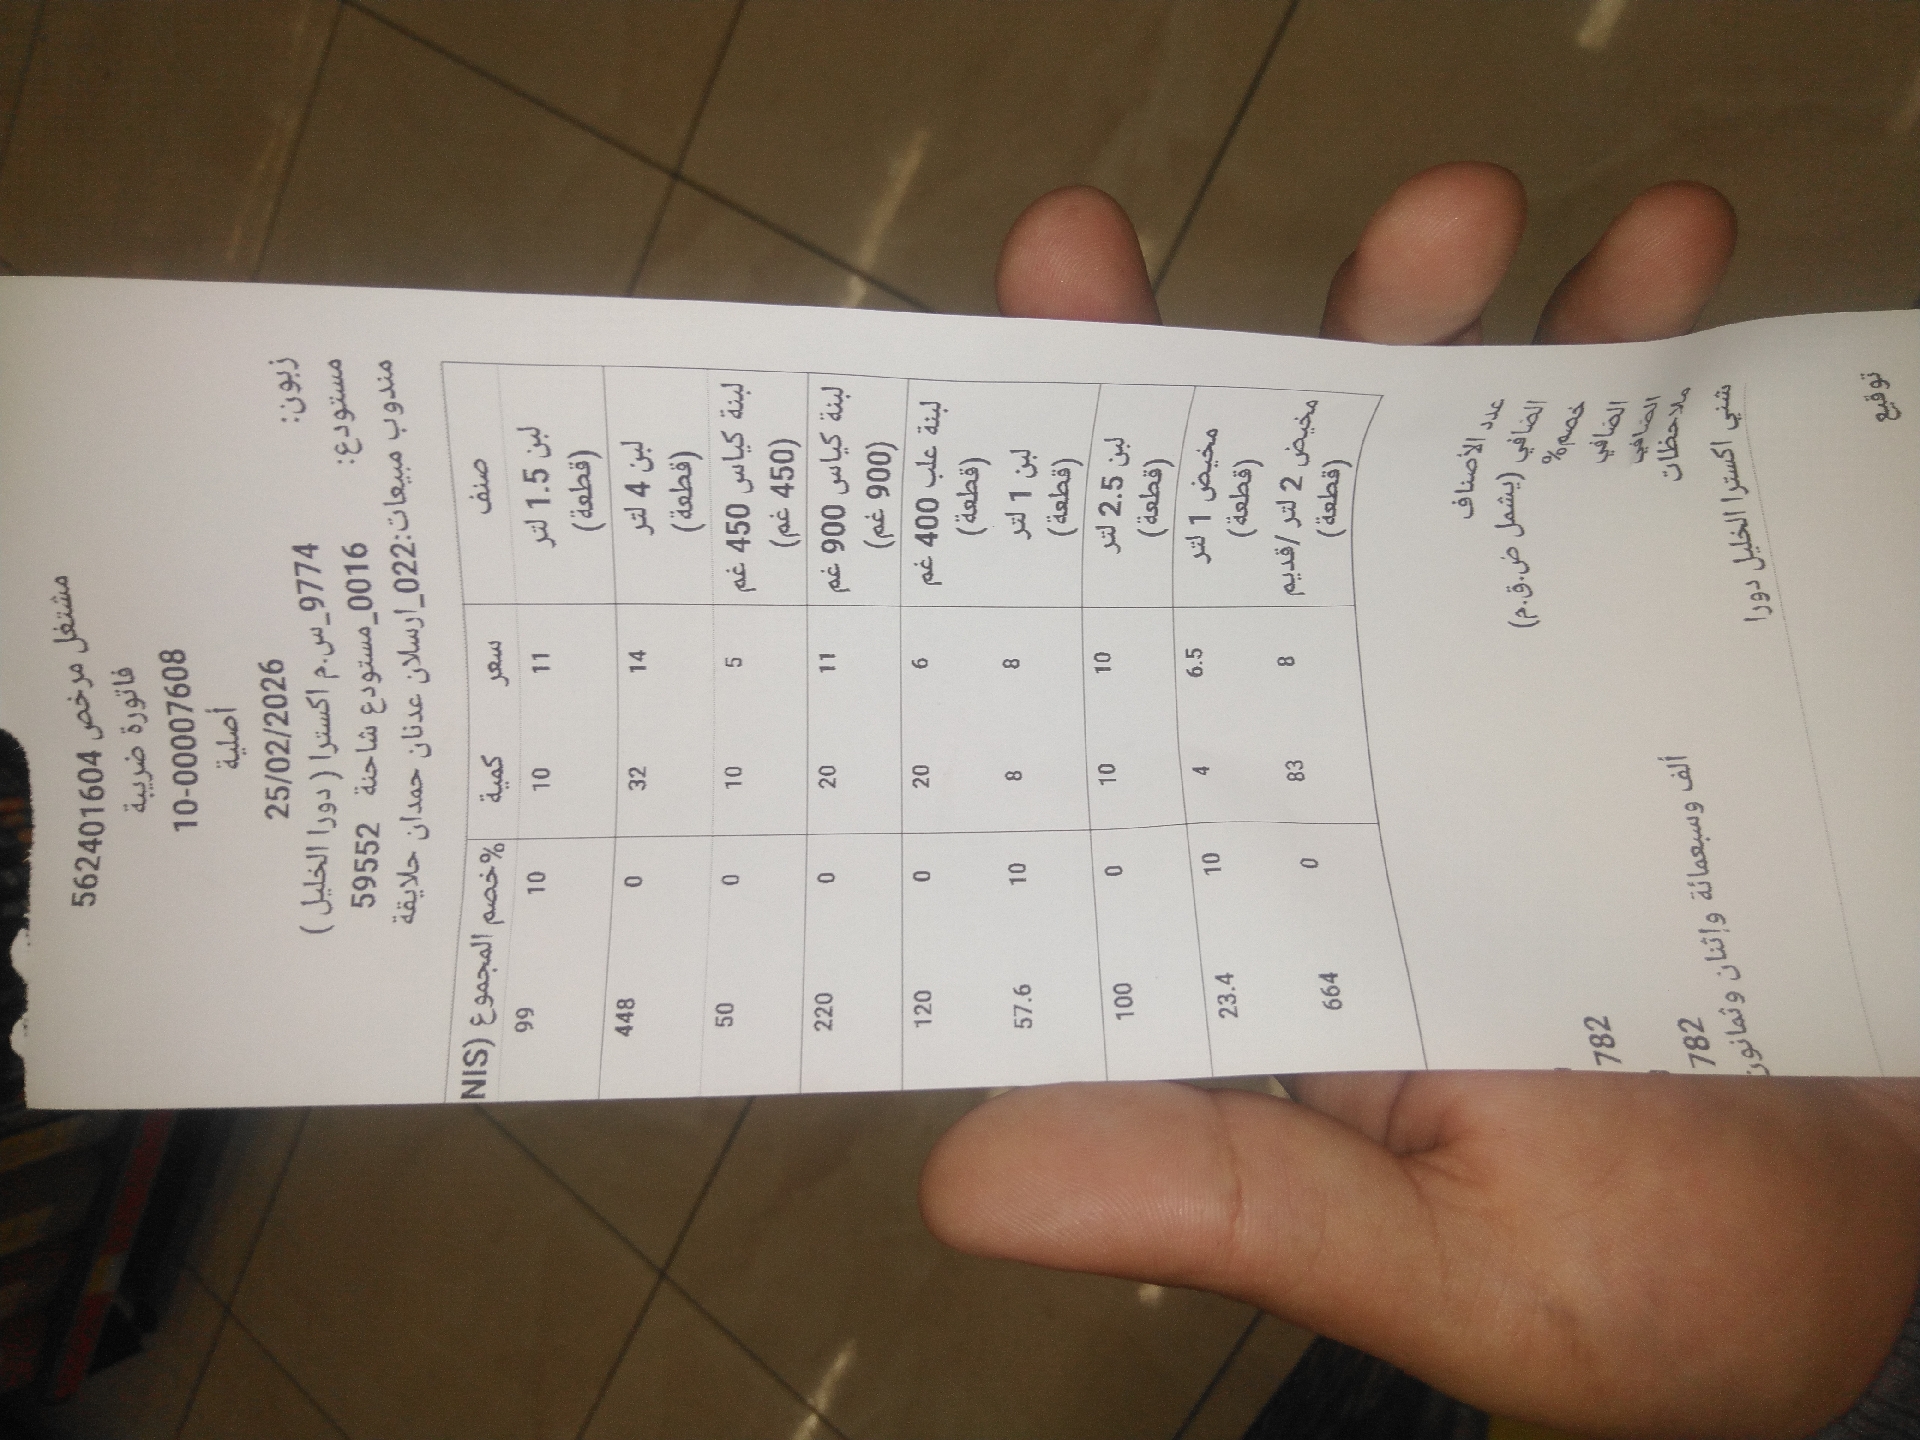 مشتغل مرخص 562401604
فاتورة ضريبية
10-00007608
أصلية
25/02/2026
زبون: 9774_س.م اكسترا ( دورا الخليل )
مستودع: 0016_مستودع شاحنة 59552
مندوب مبيعات:022_ارسلان عدنان حمدان حلايقة
صنف سعر كمية %خصم المجموع (NIS
لبن 1.5 لتر 11 10 10 99
(قطعة)
لبن 4 لتر 14 32 0 448
(قطعة)
لبنة كياس 450 غم 5 10 0 50
(450 غم)
لبنة كياس 900 غم 11 20 0 220
(900 غم)
لبنة علب 400 غم 6 20 0 120
(قطعة)
لبن 1 لتر 8 8 10 57.6
(قطعة)
لبن 2.5 لتر 10 10 0 100
(قطعة)
مخيض 1 لتر 6.5 4 10 23.4
(قطعة)
مخيض 2 لتر /قديم 8 83 0 664
(قطعة)
عدد الأصناف
الصافي (يشمل ض.ق.م)
خصم%
الصافي 782
الصافي
ملاحظات 782
ألف وسبعمائة وإثنان وثمانون
شني اكسترا الخليل دورا
توقيع